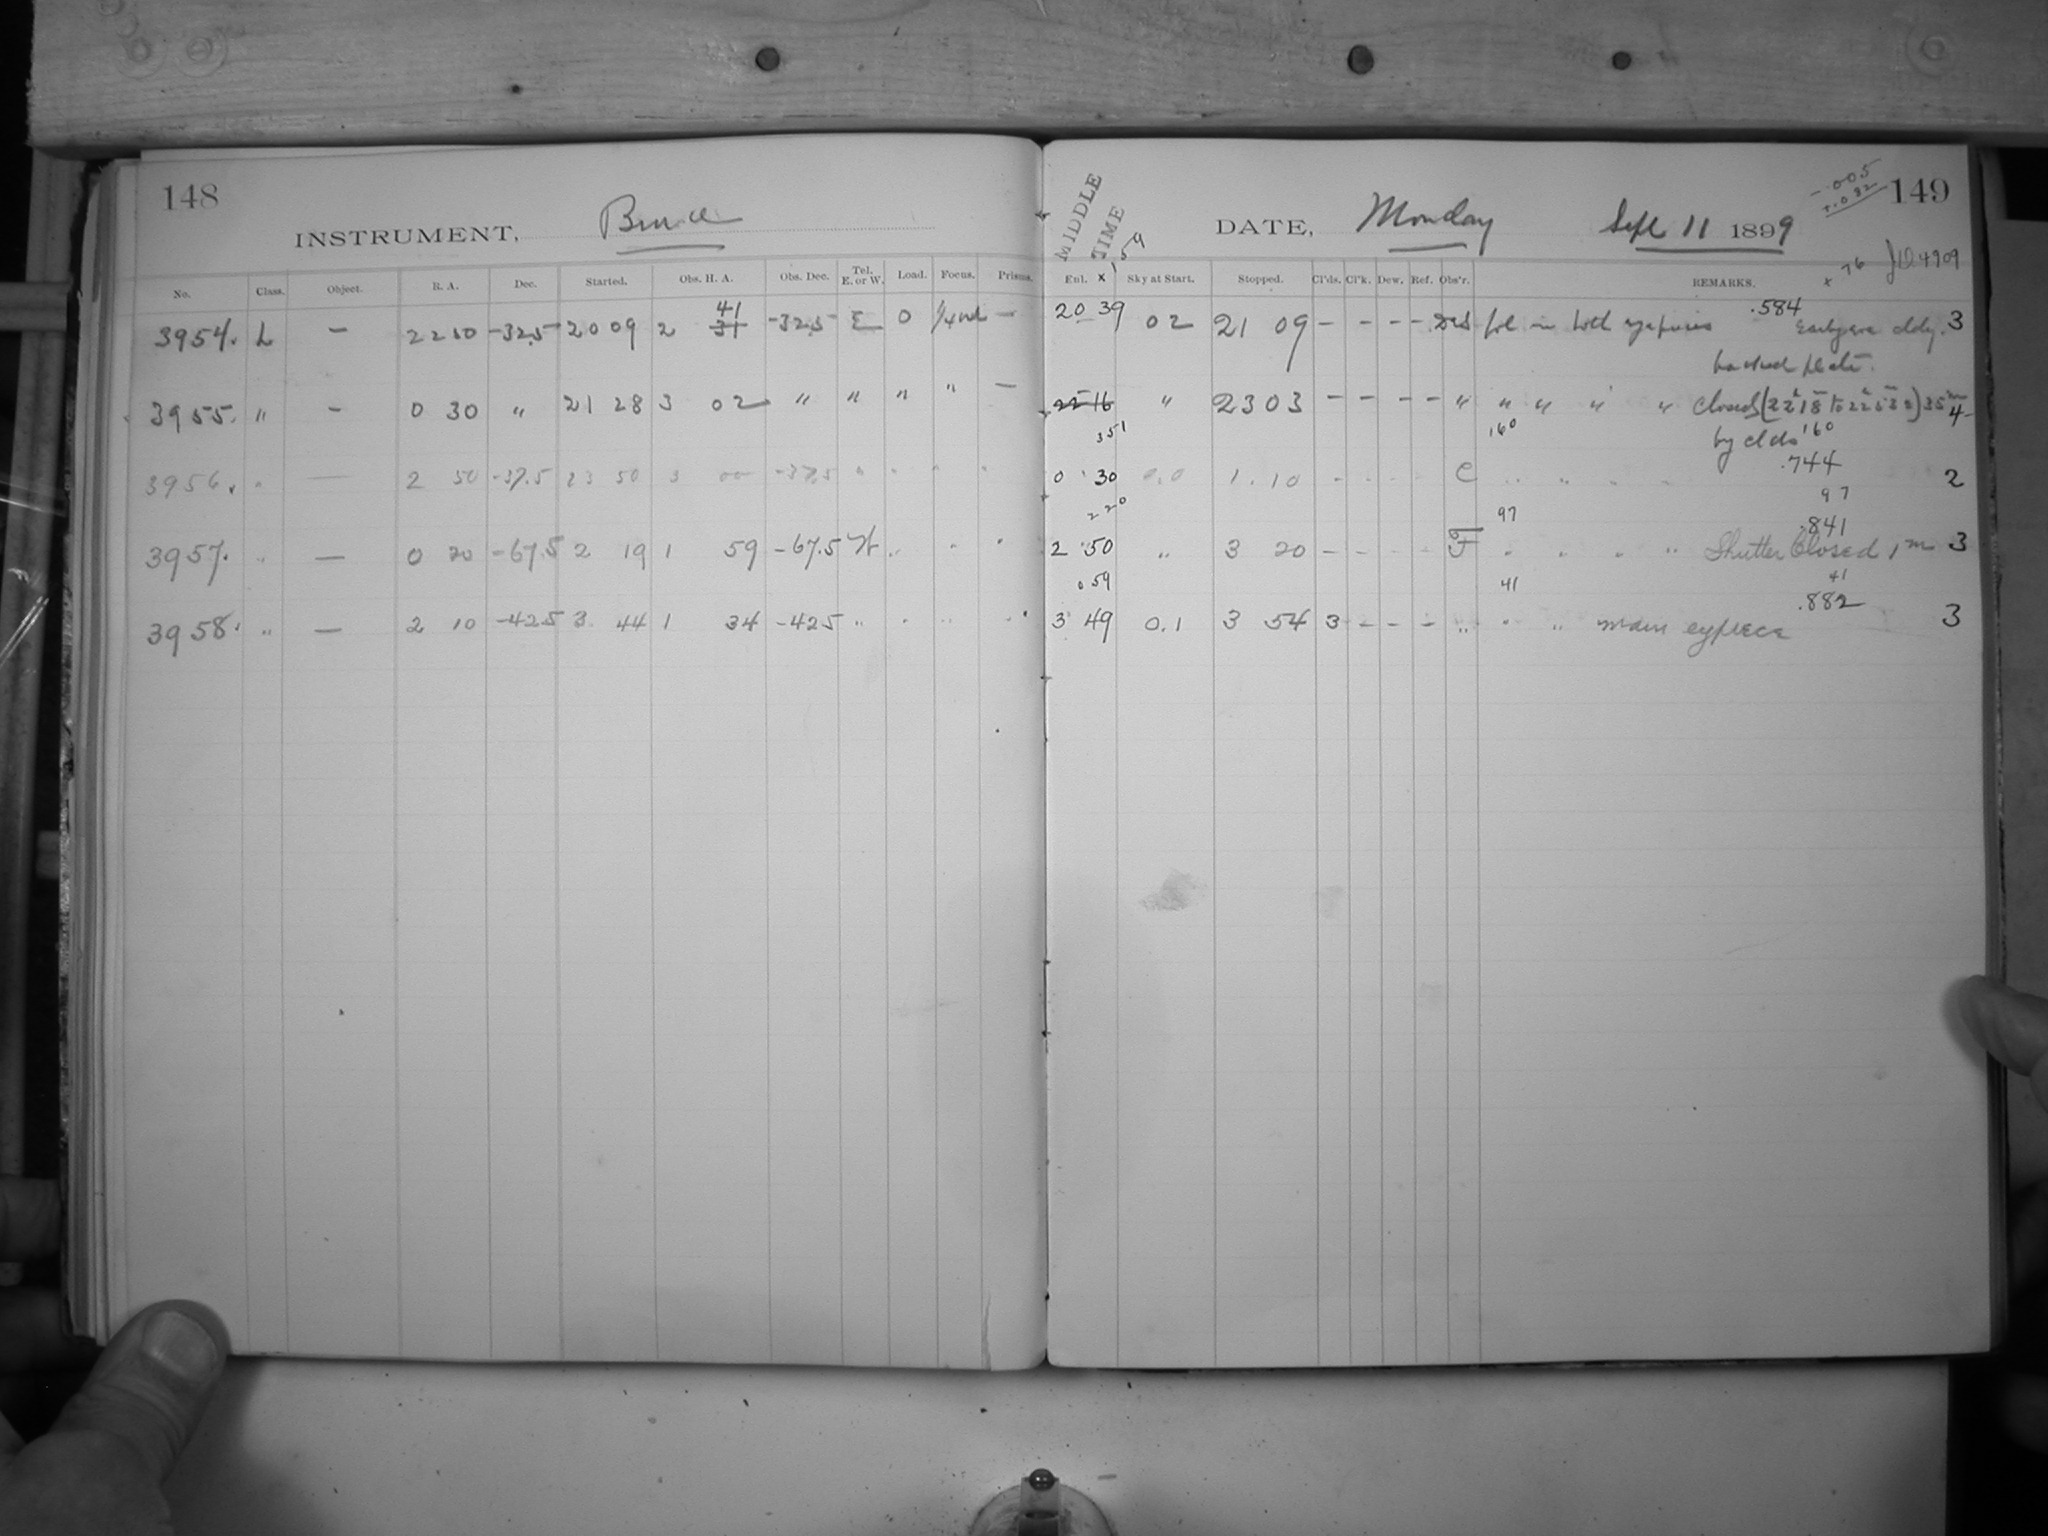 148
INSTRUMENT, Bruce
No. Class. Object. R. A. Dec. Started. Obs. H. A. Obs. Dec. Tel. E. or W. Load. Focus. Prisms.
41
3954. L — 22 50 -32.5 20 09 2 31 -32.5 E 0 —
3955. " — 0 30 " 21 28 3 02 " " " " —
3956. " — 2 50 -37.5 23 50 3 00 -37.5 " " " "
3957. " — 0 20 -67.5 2 19 1 59 -67.5 W " " "
3958. " — 2 10 -42.5 3 44 1 34 -42.5 " " " "
MIDDLE TIME
149
-.005
+.082
DATE, Monday Sept 11 1899
59
x 76 JD 4909
Enl. x Sky at Start. Stopped. Cl'ds. Cl'k. Dew. Ref. Obs'r. REMARKS.
.584
20 39 02 21 09 — — — — in both 3
backed plate.
22 16 " 23 03 — — — — " " " " " Closed (22 18 to 22 53) 35m 4
351 160 by clds 160
.744
0 30 0.0 1 10 - - - - C " " " " 2
97
220 97
.841
2 50 " 3 20 - - - - F " " " " Shutter Closed 1m 3
059 41 41
.882
3 49 0.1 3 54 3 - - - " " " main eypiece 3